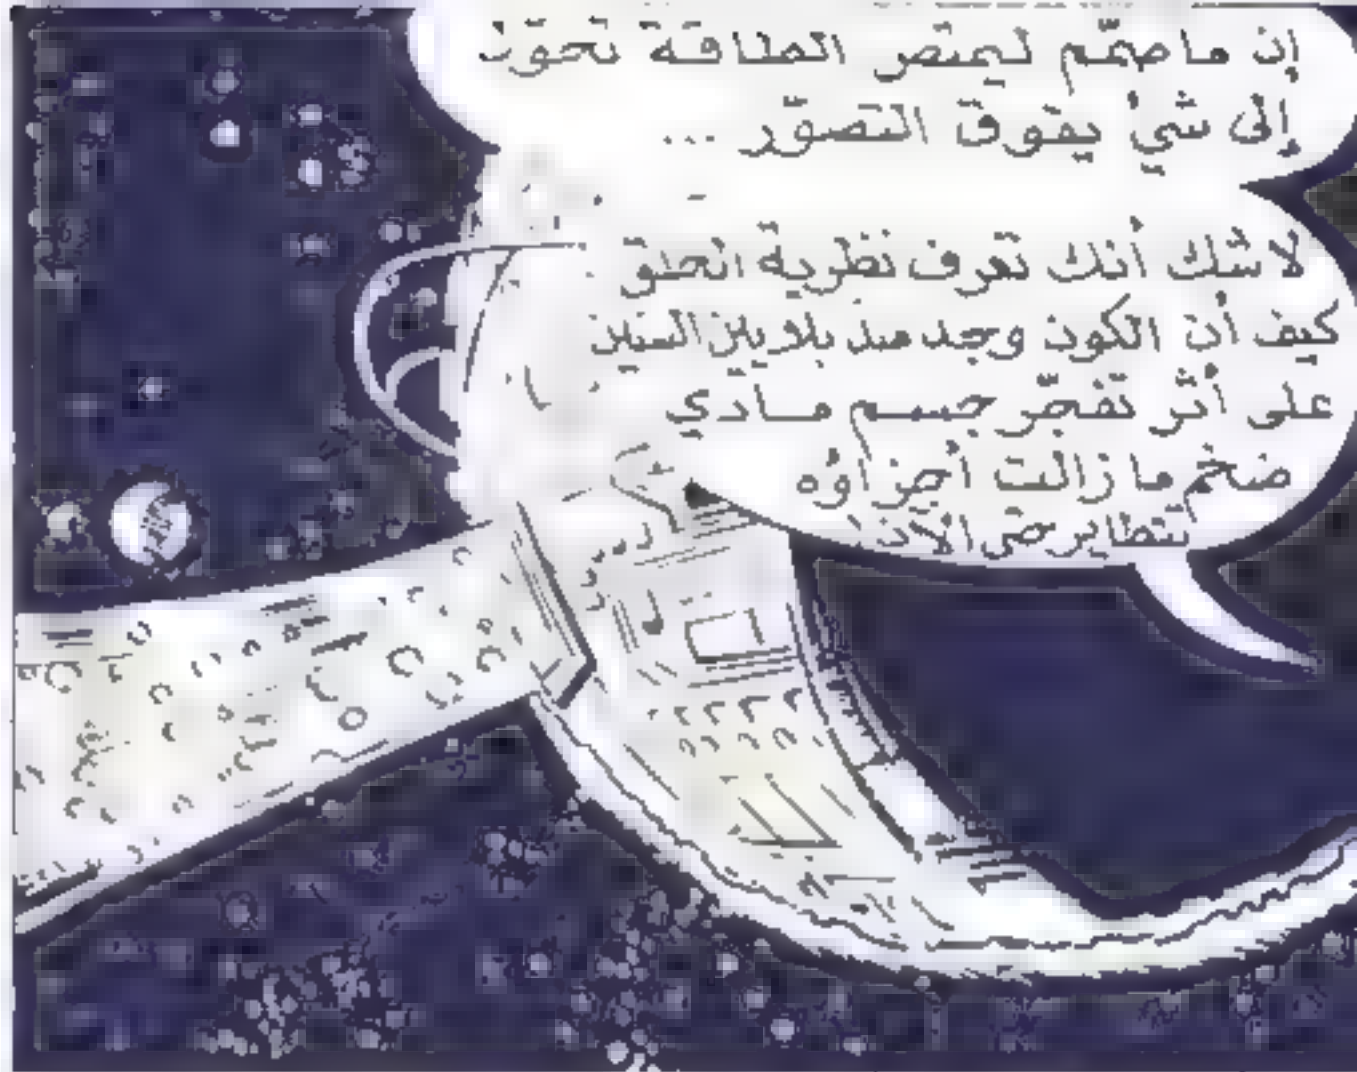 إن ما صمّم ليمتص الطاقة تحوّل
إلى شيء يفوق التصوّر ...
لا شك أنك تعرف نظرية الخلق
كيف أن الكون وجد منذ بلايين السنين
على أثر تفجّر جسم مادي
ضخم ما زالت أجزاؤه
تتطاير حتى الآن!